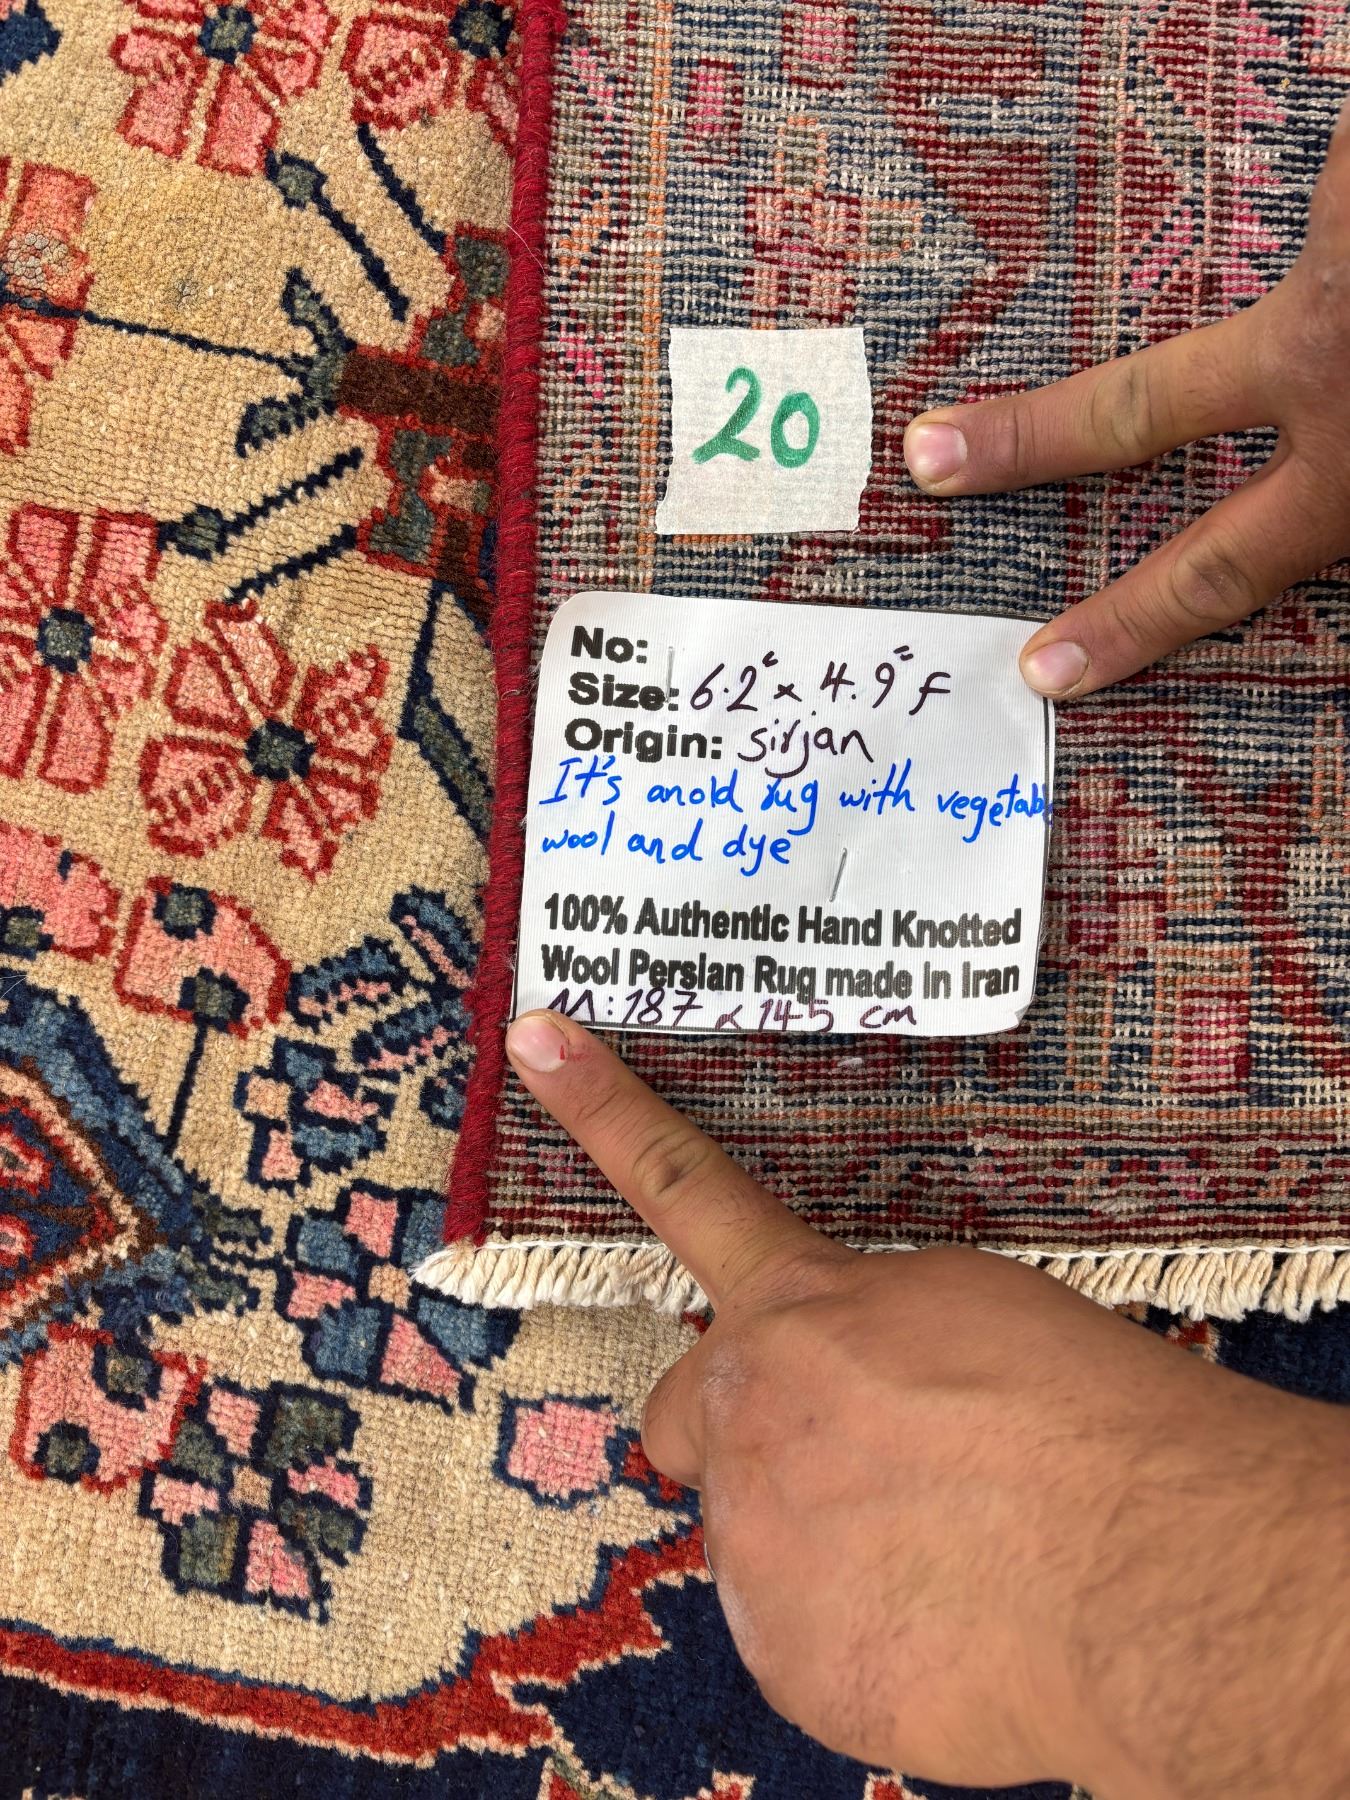 20
No:
Size: 6.2" x 4.9" F
Origin: sirjan
It's anold rug with vegetabl
wool and dye
100% Authentic Hand Knotted
Wool Persian Rug made in Iran
M: 187 x 145 cm